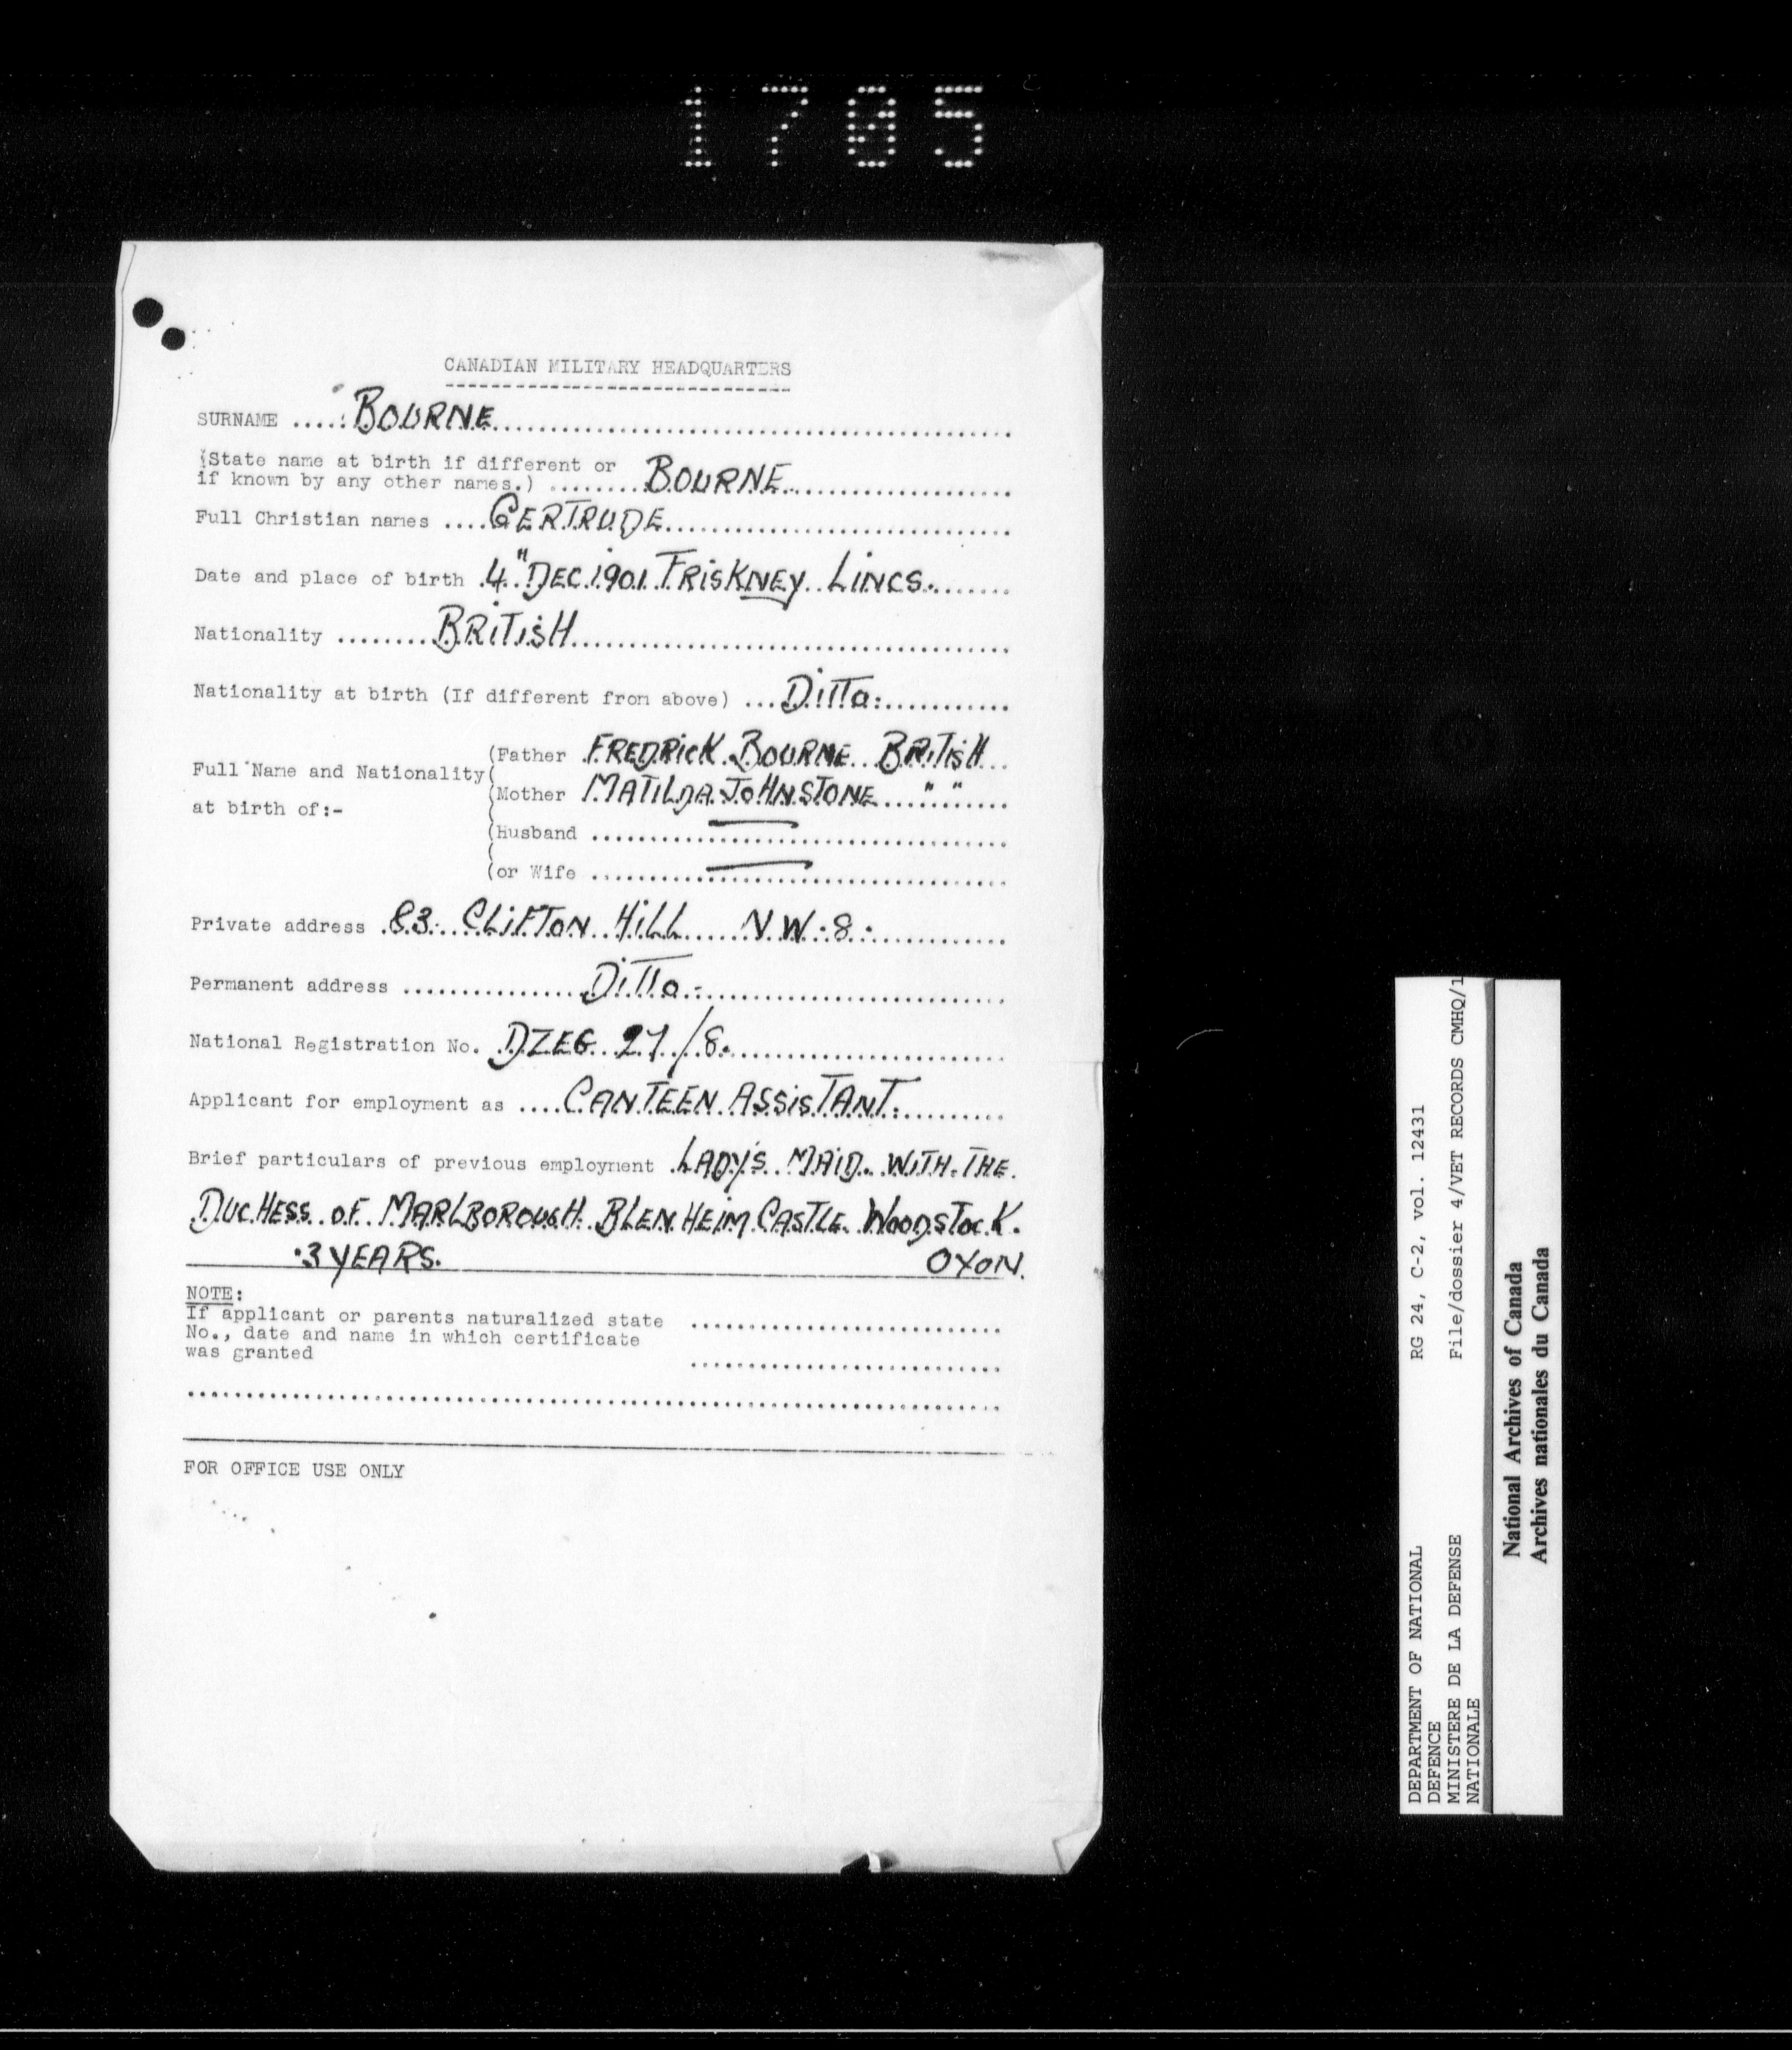 1705
CANADIAN MILITARY HEADQUARTERS
SURNAME ..... BOURNE
(State name at birth if different or
if known by any other names.) ........ BOURNE
Full Christian names .... GERTRUDE
Date and place of birth 4" DEC. 1901. FRISKNEY. LINCS.
Nationality ........ BRITISH
Nationality at birth (If different from above) ... Ditto.
Full Name and Nationality
at birth of:-
(Father FREDRICK BOURNE BRITISH
(Mother MATILDA JOHNSTONE " "
(Husband ——
(or Wife ——
Private address 83. CLIFTON HILL N.W.8.
Permanent address ............... Ditto.
National Registration No. DZEG 27/8.
Applicant for employment as .... CANTEEN ASSISTANT.
Brief particulars of previous employment LADY'S MAID. WITH THE
DUCHESS OF MARLBOROUGH. BLENHEIM CASTLE. WOODSTOCK.
3 YEARS. OXON.
NOTE:
If applicant or parents naturalized state
No., date and name in which certificate
was granted
FOR OFFICE USE ONLY
DEPARTMENT OF NATIONAL
DEFENCE
MINISTERE DE LA DEFENSE
NATIONALE
RG 24, C-2, vol. 12431
File/dossier 4/VET RECORDS CMHQ/1
National Archives of Canada
Archives nationales du Canada